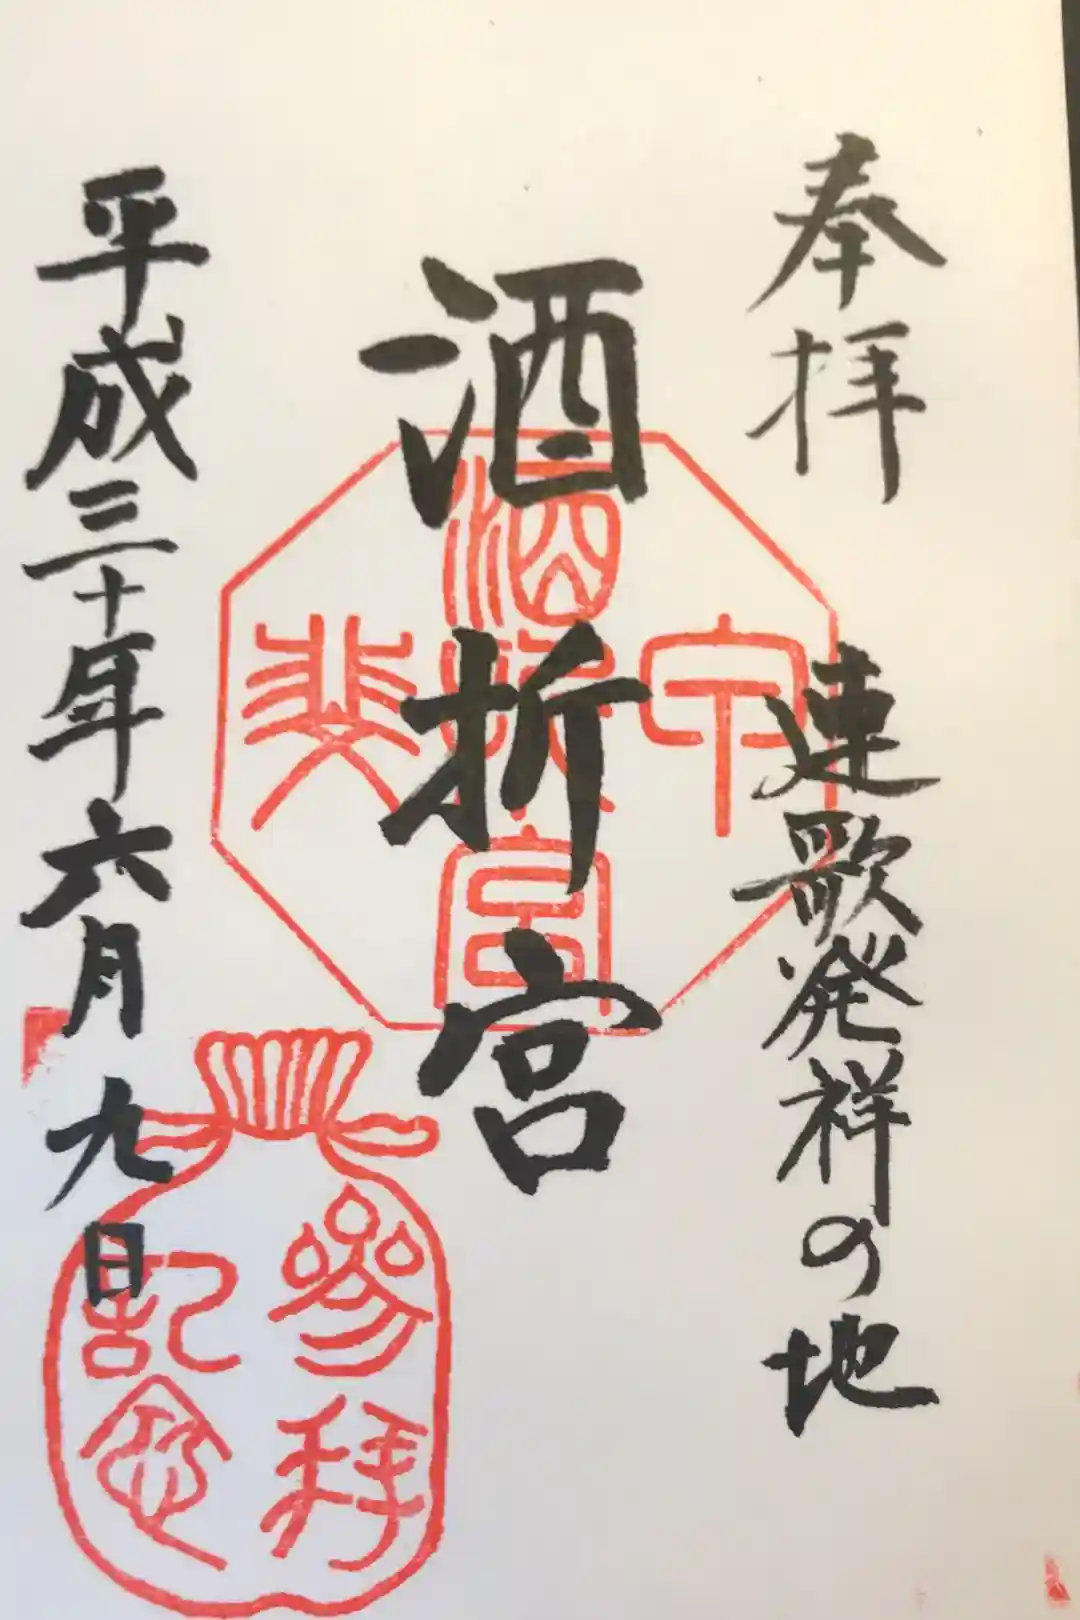 奉拝
連歌発祥の地
酒折宮
平成三十年六月九日
酒折宮
参拝
記念